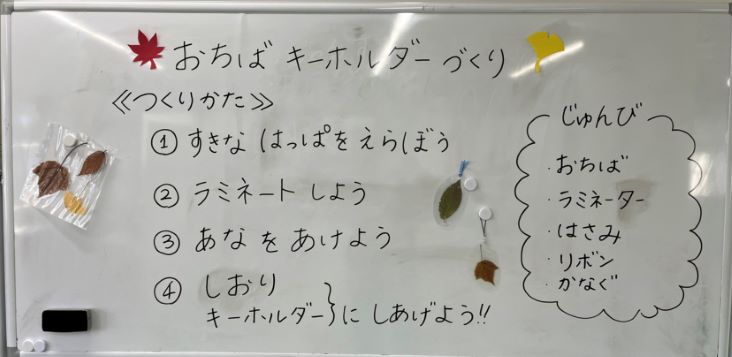 おちば キーホルダーづくり
≪つくりかた≫
① すきな はっぱを えらぼう
② ラミネート しよう
③ あなを あけよう
④ しおり
キーホルダー}に しあげよう!!
じゅんび
・おちば
・ラミネーター
・はさみ
・リボン
・かなぐ